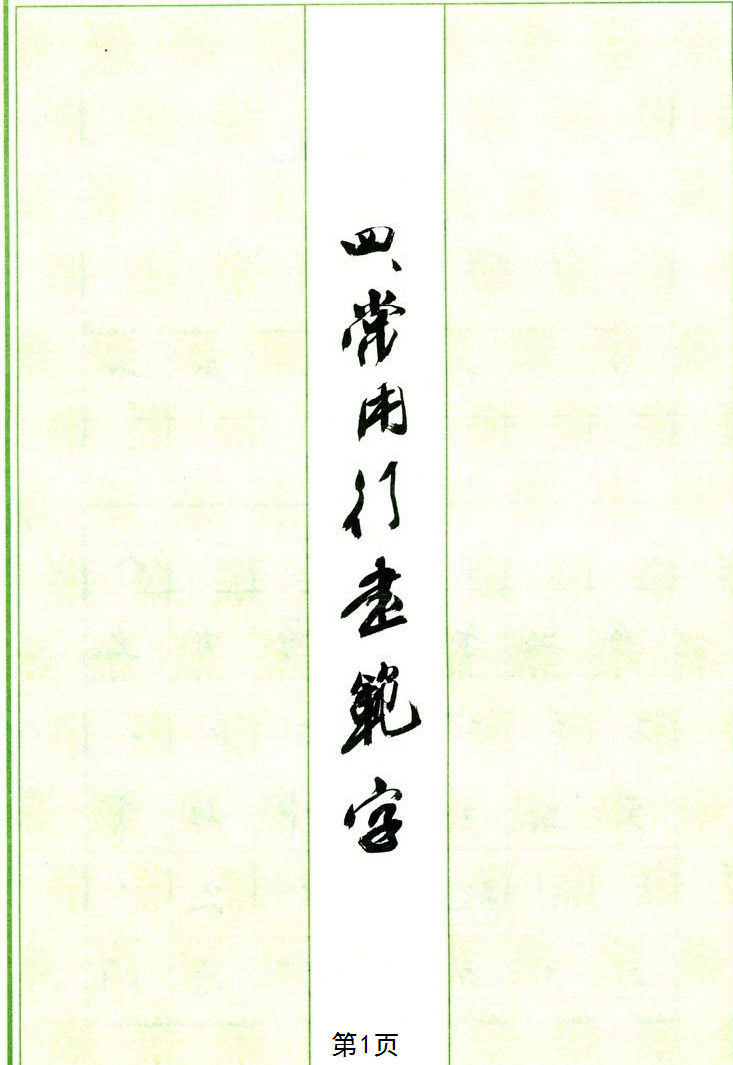 四、常用行書範字
第1页